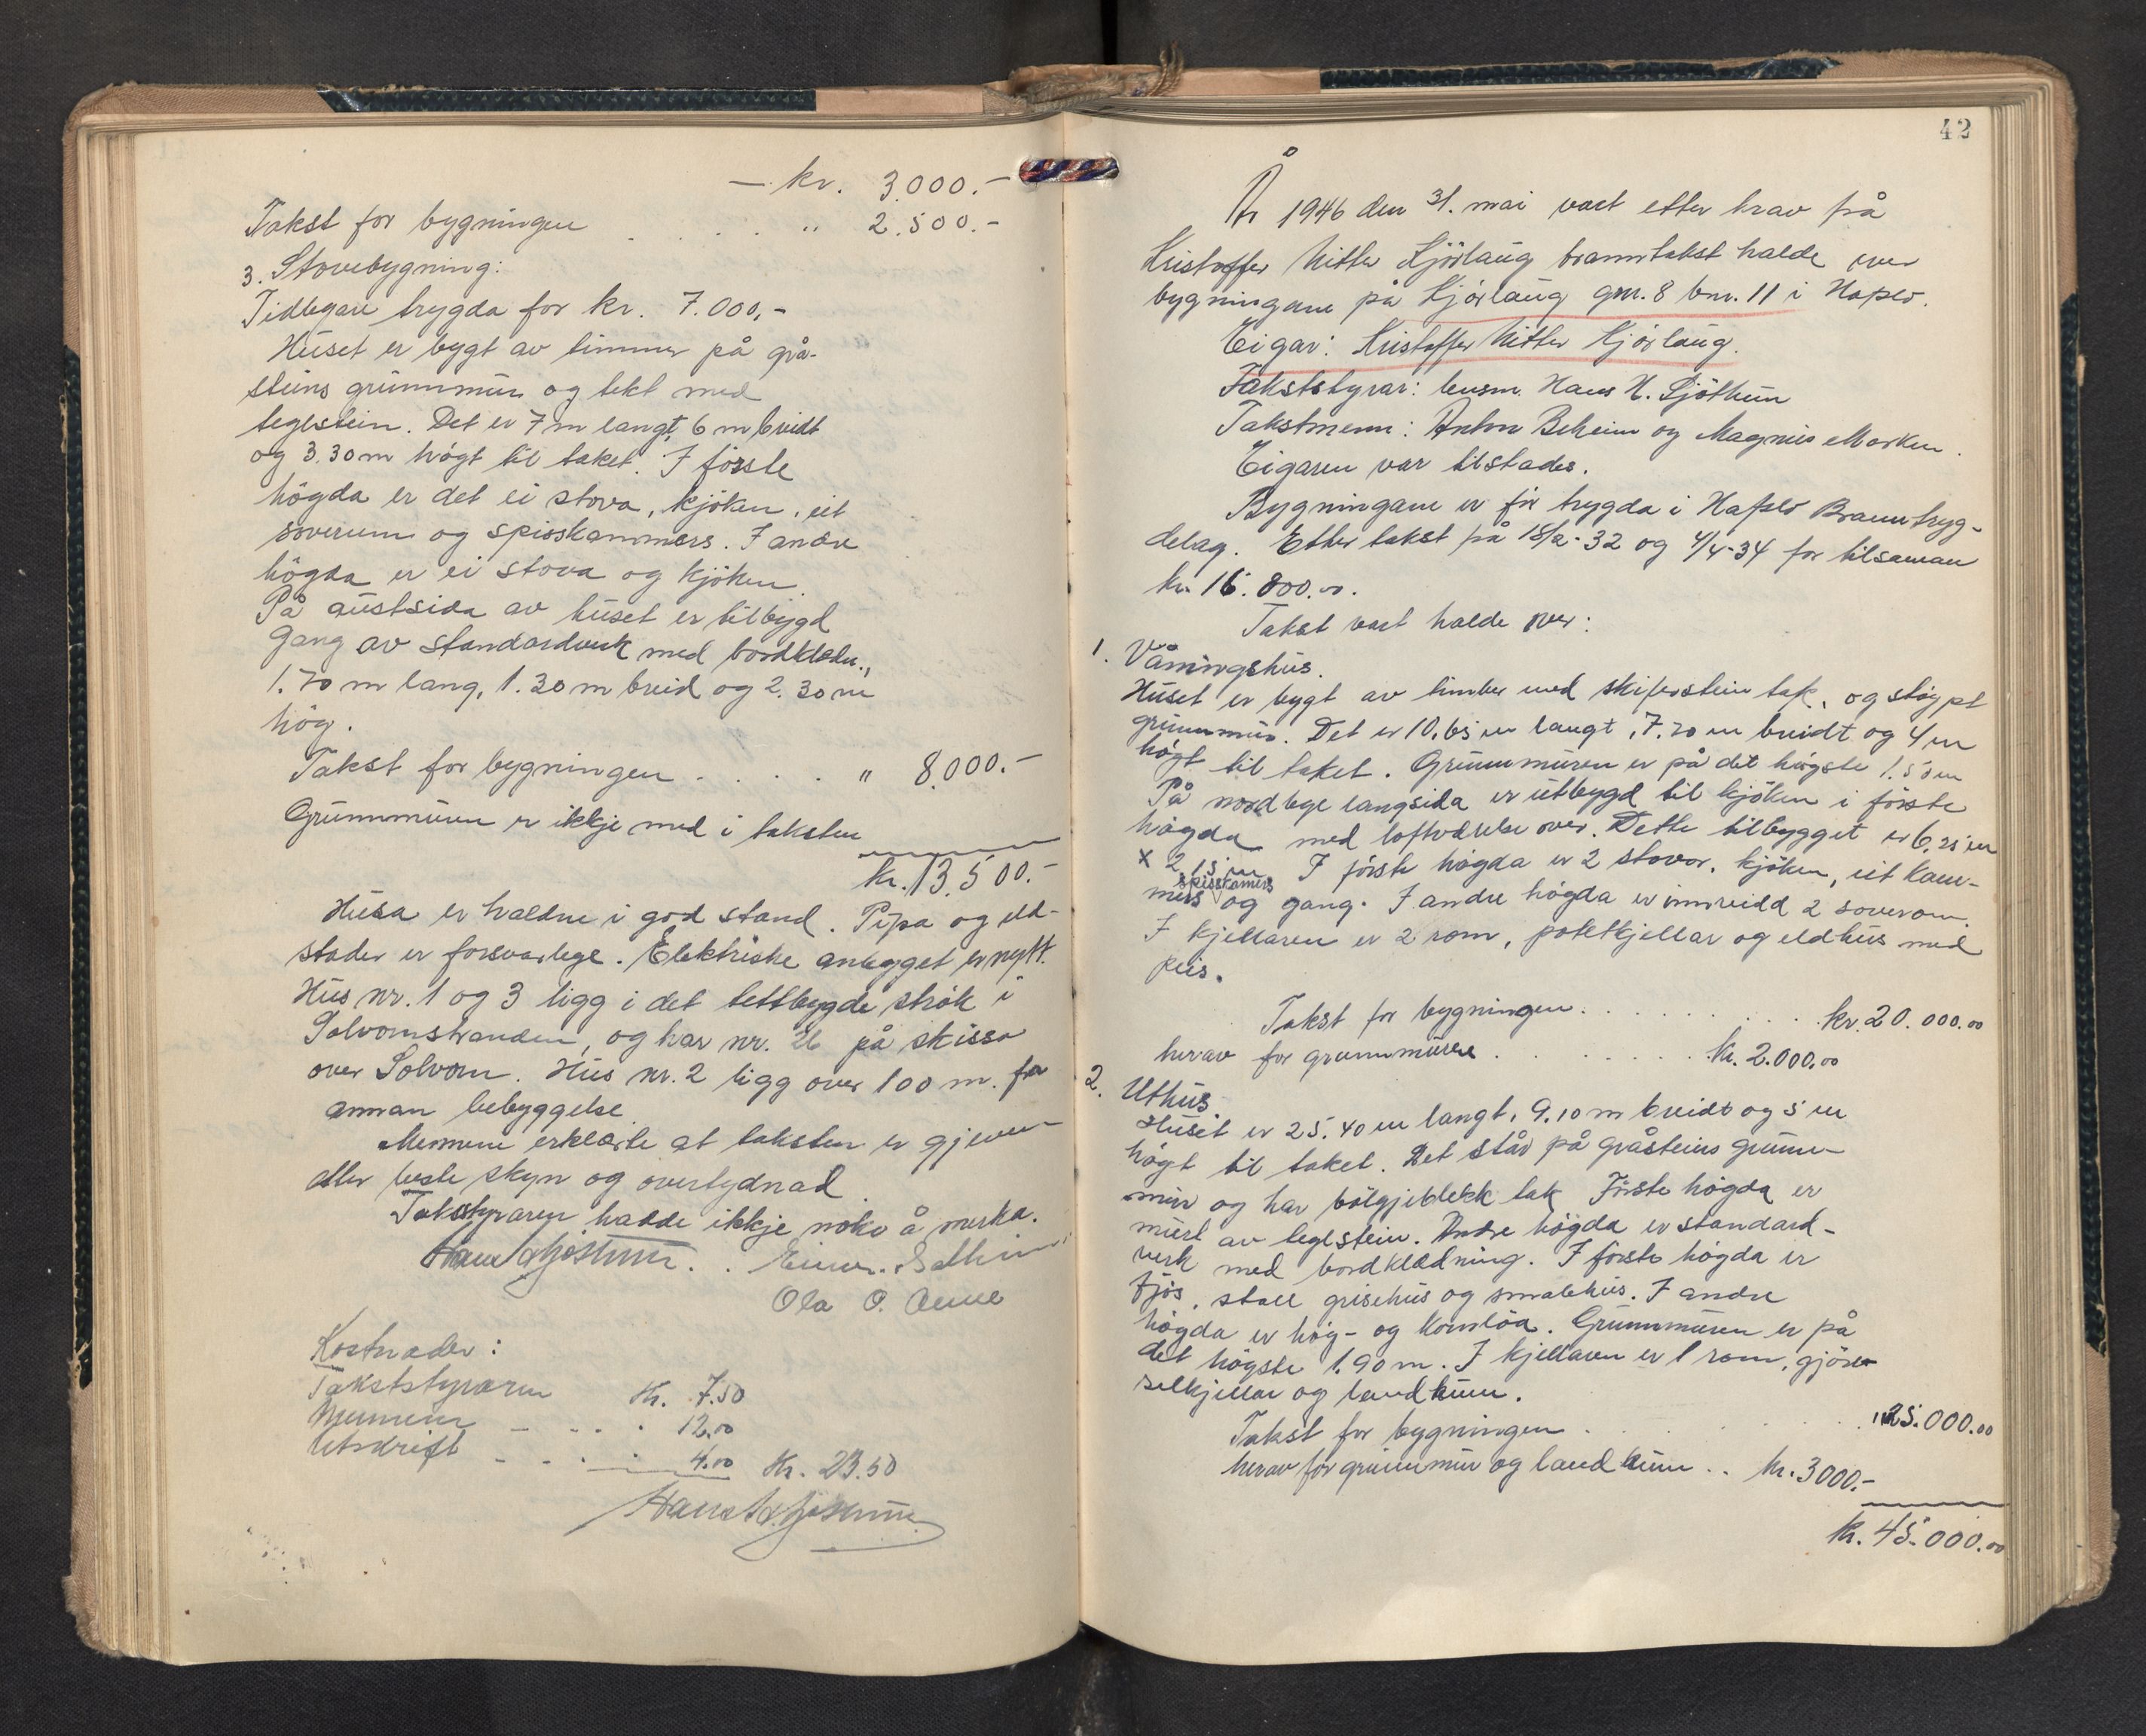 — kr. 3.000.-
Takst for bygningen . . . . " 2.500.-
3. Stovebygning:
Tidlegare trygda for kr. 7.000,-
Huset er bygt av timmer på grå-
steins grunnmur og tekt med
teglstein. Det er 7 m langt, 6 m breidt
og 3.30 m högt til taket. I förste
högda er det ei stova, kjöken, eit
soverum og spisskammers. I andre
högda er ei stova og kjöken.
På austsida av huset er tilbygd
gang av standardverk med bordkledn.,
1.70 m lang, 1.30 m breid og 2.30 m
hög.
Takst for bygningen . . . . " 8.000.-
Grunnmuren er ikkje med i taksten
kr. 13.500.-
Husa er haldne i god stand. Pipa og eld-
stader er forsvarlege. Elektriske anlegget er nytt.
Hus nr. 1 og 3 ligg i det tettbygde strök i
Solvornstranden, og har nr. 26 på skissa
over Solvorn. Hus nr. 2 ligg over 100 m. fra
annan bebyggelse.
Mennene erklærte at taksten er gjeven
etter beste skyn og overtydnad.
Takststyraren hadde ikkje noko å merka.
Hans H. Sjöthun. Einar
Ola O.
Kostnader:
Takststyraren Kr. 7.50
Mennene - - . . 12.00
Utskrift - - . . 4.00 Kr. 23.50
Hans H. Sjöthun.
42
År 1946 den 31. mai vart etter krav frå
Kristoffer Nitter Kjörlaug branntakst halde over
bygningane på Kjörlaug gnr. 8 bnr. 11 i Hafslo.
Eigar: Kristoffer Nitter Kjörlaug.
Takststyrar: lensm. Hans H. Sjöthun
Takstmenn: Anton Beheim og Magnus Morken.
Eigaren var tilstades.
Bygningane er för trygda i Hafslo Branntryg-
delag. Etter takst på 18/2-32 og 4/4-34 for tilsaman
kr. 16.800.00.
Takst vart halde over:
1. Våningshus.
Huset er bygt av timber med skiferstein tak, og stöypt
grunnmur. Det er 10.65 m langt, 7.70 m breidt og 4 m
högt til taket. Grunnmuren er på det högste 1.50 m
På nordlege langsida er utbygd til kjöken i förste
högda med loftværelse over. Dette tilbygget er 6.25 m
x 2.15 m. I förste högda er 2 stover, kjöken, eit kam-
mers spisskamers og gang. I andre högda er innreidd 2 soverom.
I kjellaren er 2 rom, potetkjellar og eldhus med
peis.
Takst for bygningen . . . . . . . . kr. 20.000.00
herav for grunnmuren . . . . . . . kr. 2.000.00
2. Uthus.
Huset er 25.40 m langt, 9.10 m breidt og 5 m
högt til taket. Det står på gråsteins grunn-
mur og har bölgjeblekk tak. Förste högda er
murt av teglstein. Andre högda er standard-
verk med bordklædning. I förste högda er
fjös, stall grisehus og smalehus. I andre
högda er höy- og kornlöa. Grunnmuren er på
det högste 1.90 m. I kjellaren er 1 rom, gjöds-
selkjellar og landkum.
Takst for bygningen . . . . " 25.000.00
herav for grunnmur og landkum .. kr. 3000.-
kr. 45.000.00